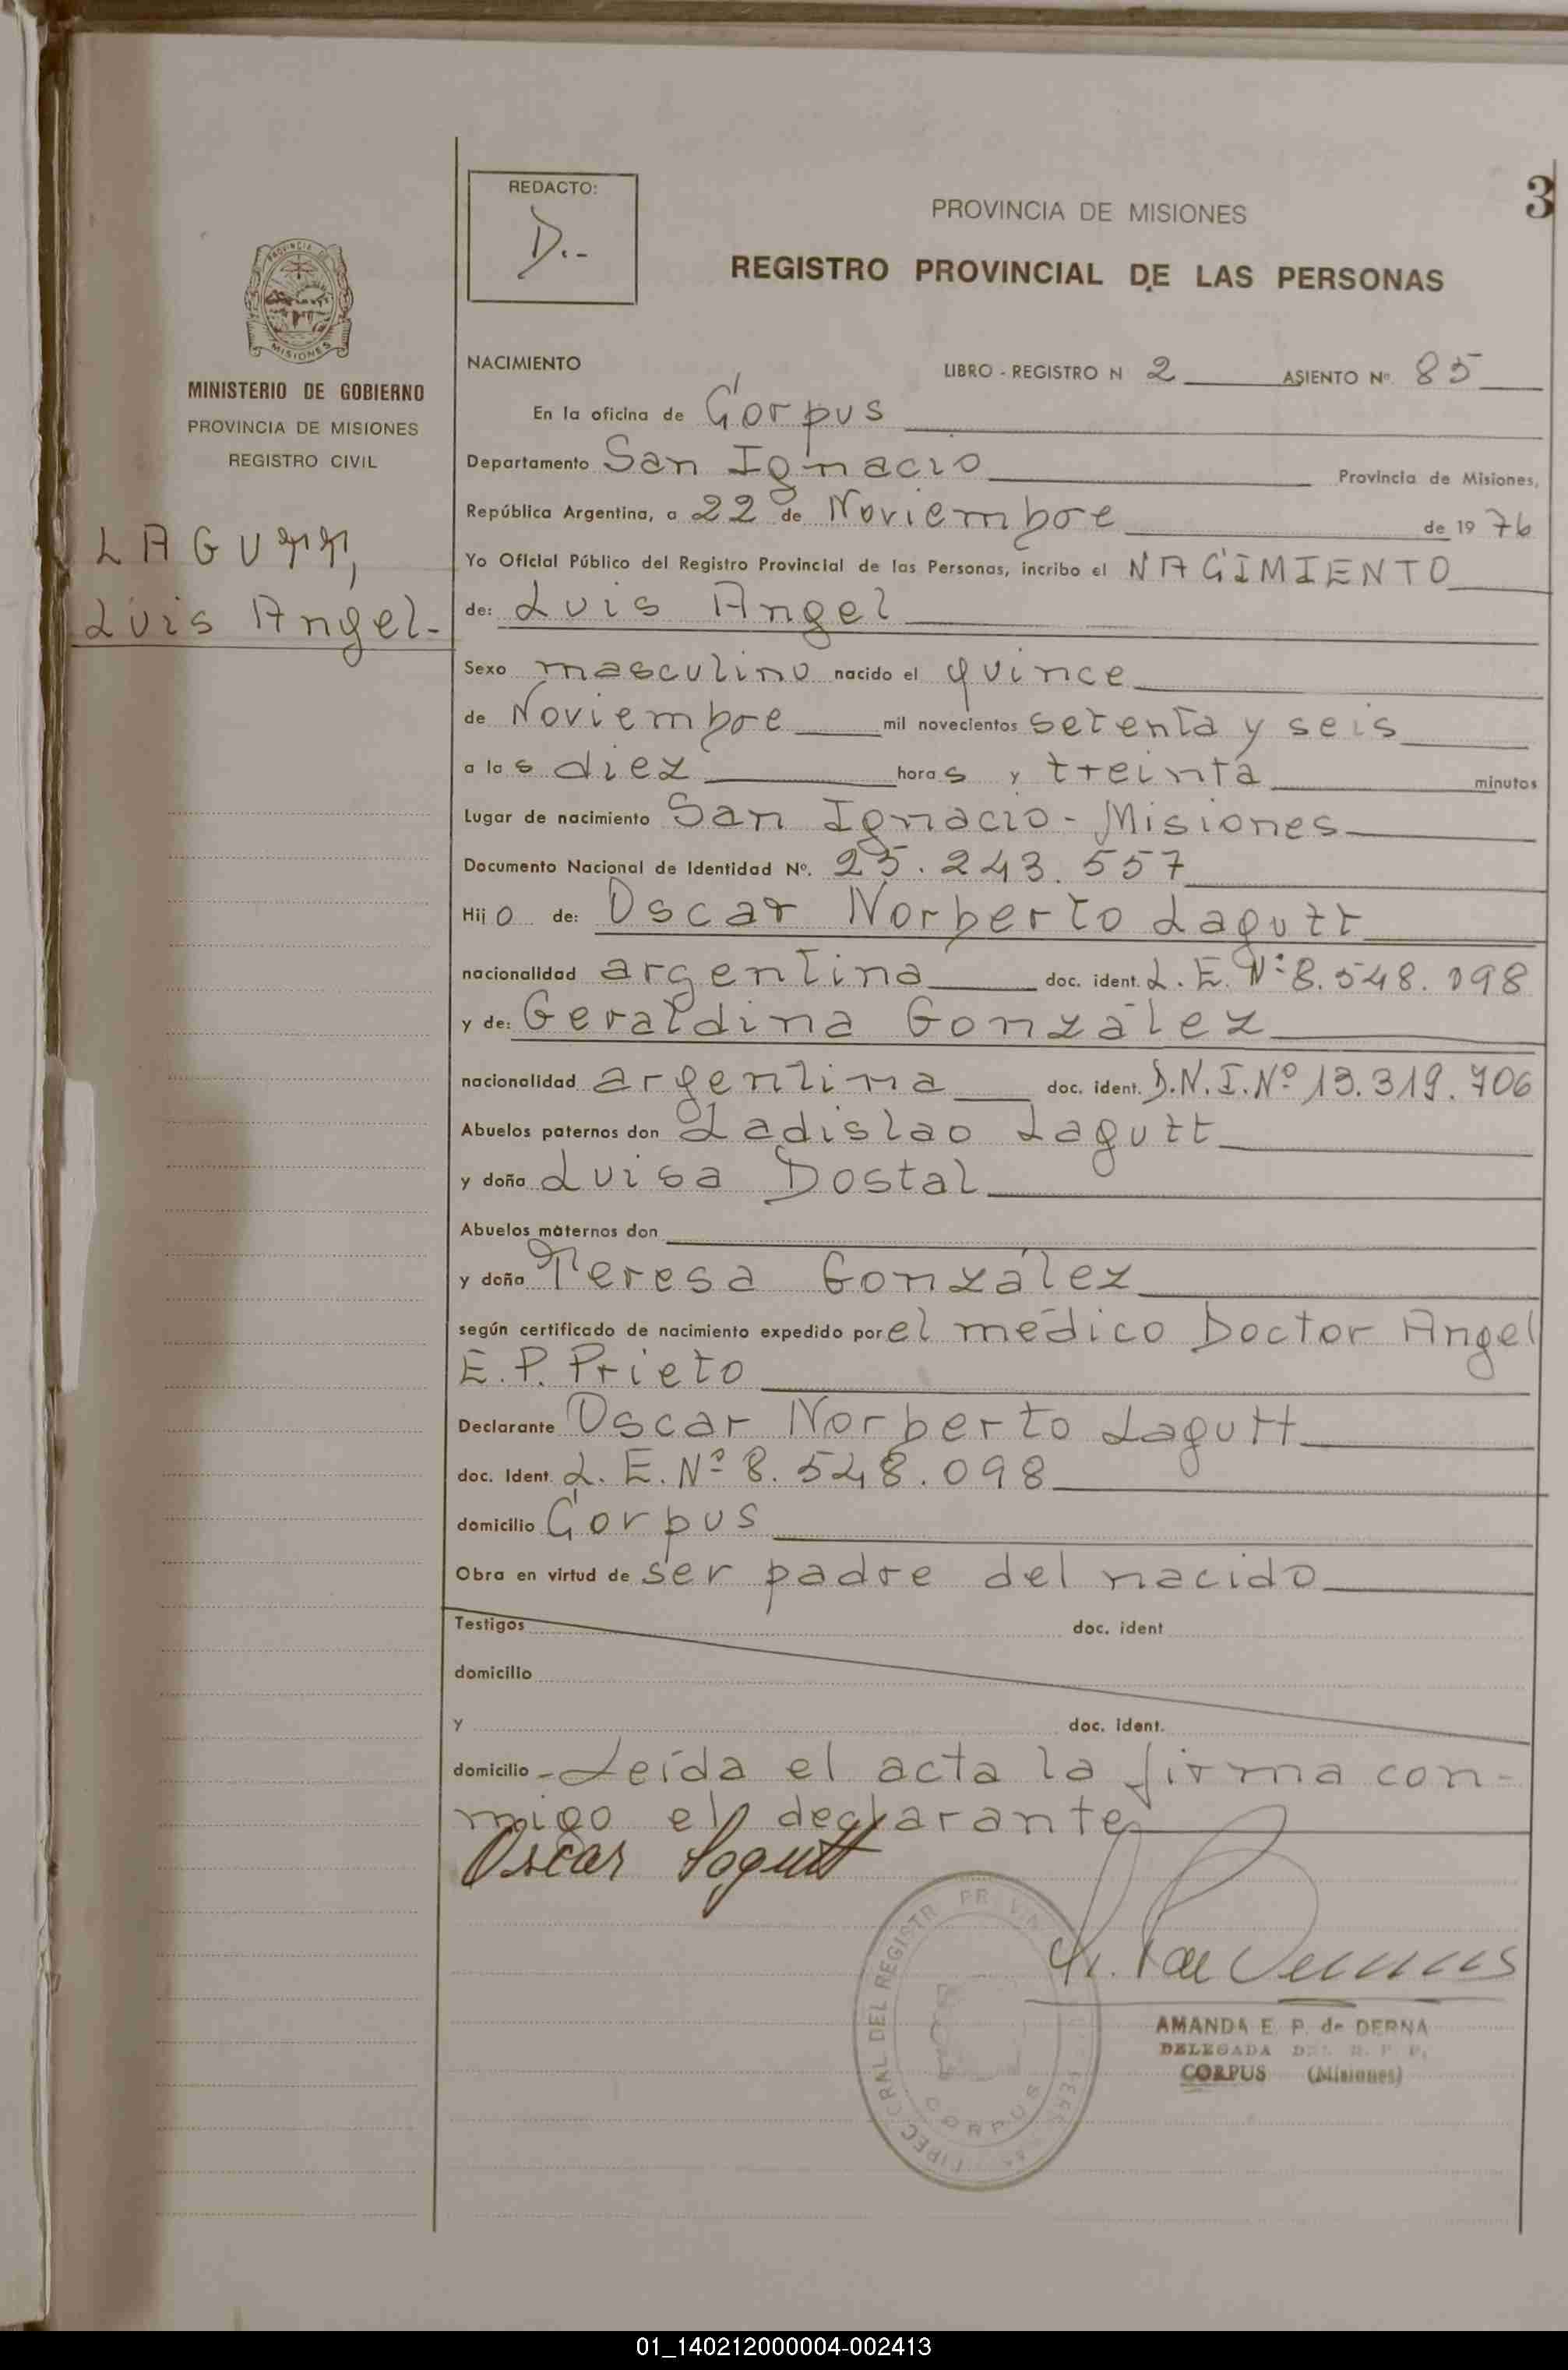 REDACTO:
D.-
3
PROVINCIA DE MISIONES
REGISTRO PROVINCIAL DE LAS PERSONAS
PROVINCIA DE
MISIONES
MINISTERIO DE GOBIERNO
PROVINCIA DE MISIONES
REGISTRO CIVIL
LAGUTT,
Luis Angel-
NACIMIENTO LIBRO - REGISTRO N 2 ASIENTO Nº. 85
En la oficina de Corpus
Departamento San Ignacio Provincia de Misiones,
República Argentina, a 22 de Noviembre de 1976
Yo Oficial Público del Registro Provincial de las Personas, incribo el NACIMIENTO
de: Luis Angel
Sexo masculino nacido el quince
de Noviembre mil novecientos setenta y seis
a las diez horas y treinta minutos
Lugar de nacimiento San Ignacio - Misiones
Documento Nacional de Identidad Nº. 25.243.557
Hijo de: Oscar Norberto Lagutt
nacionalidad argentina doc. ident. L.E. Nº 8.548.098
y de: Geraldina González
nacionalidad argentina doc. ident. D.N.I. Nº 13.319.706
Abuelos paternos don Ladislao Lagutt
y doña Luisa Dostal
Abuelos maternos don
y doña Teresa González
según certificado de nacimiento expedido por el médico Doctor Angel
E.P. Prieto
Declarante Oscar Norberto Lagutt
doc. Ident. L.E. Nº 8.548.098
domicilio Corpus
Obra en virtud de ser padre del nacido
Testigos doc. ident
domicilio
y doc. ident.
domicilio - Leída el acta la firma con-
migo el declarante
Oscar Lagutt
CORPUS
AMANDA E. P. de DERNA
DELEGADA DEL R. P. P.
CORPUS (Misiones)
01_140212000004-002413